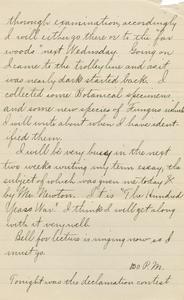 through examination, accordingly
I will either go there or to the "far
woods" next Wednesday. Going on
I came to the trolley line and as it
was nearly dark started back. I
collected some Botanical specimens
and some new species of Fungus which
I will write about when I have ident-
ified them.
I will be very busy in the next
two weeks writing my term essay, the
subject of which was given me today
by Mr. Newton. It is "The Hundred
Years War." I think I will get along
with it very well.
Bell for lecture is ringing now, so I
must go.
P.M.
Tonight was the declamation contest